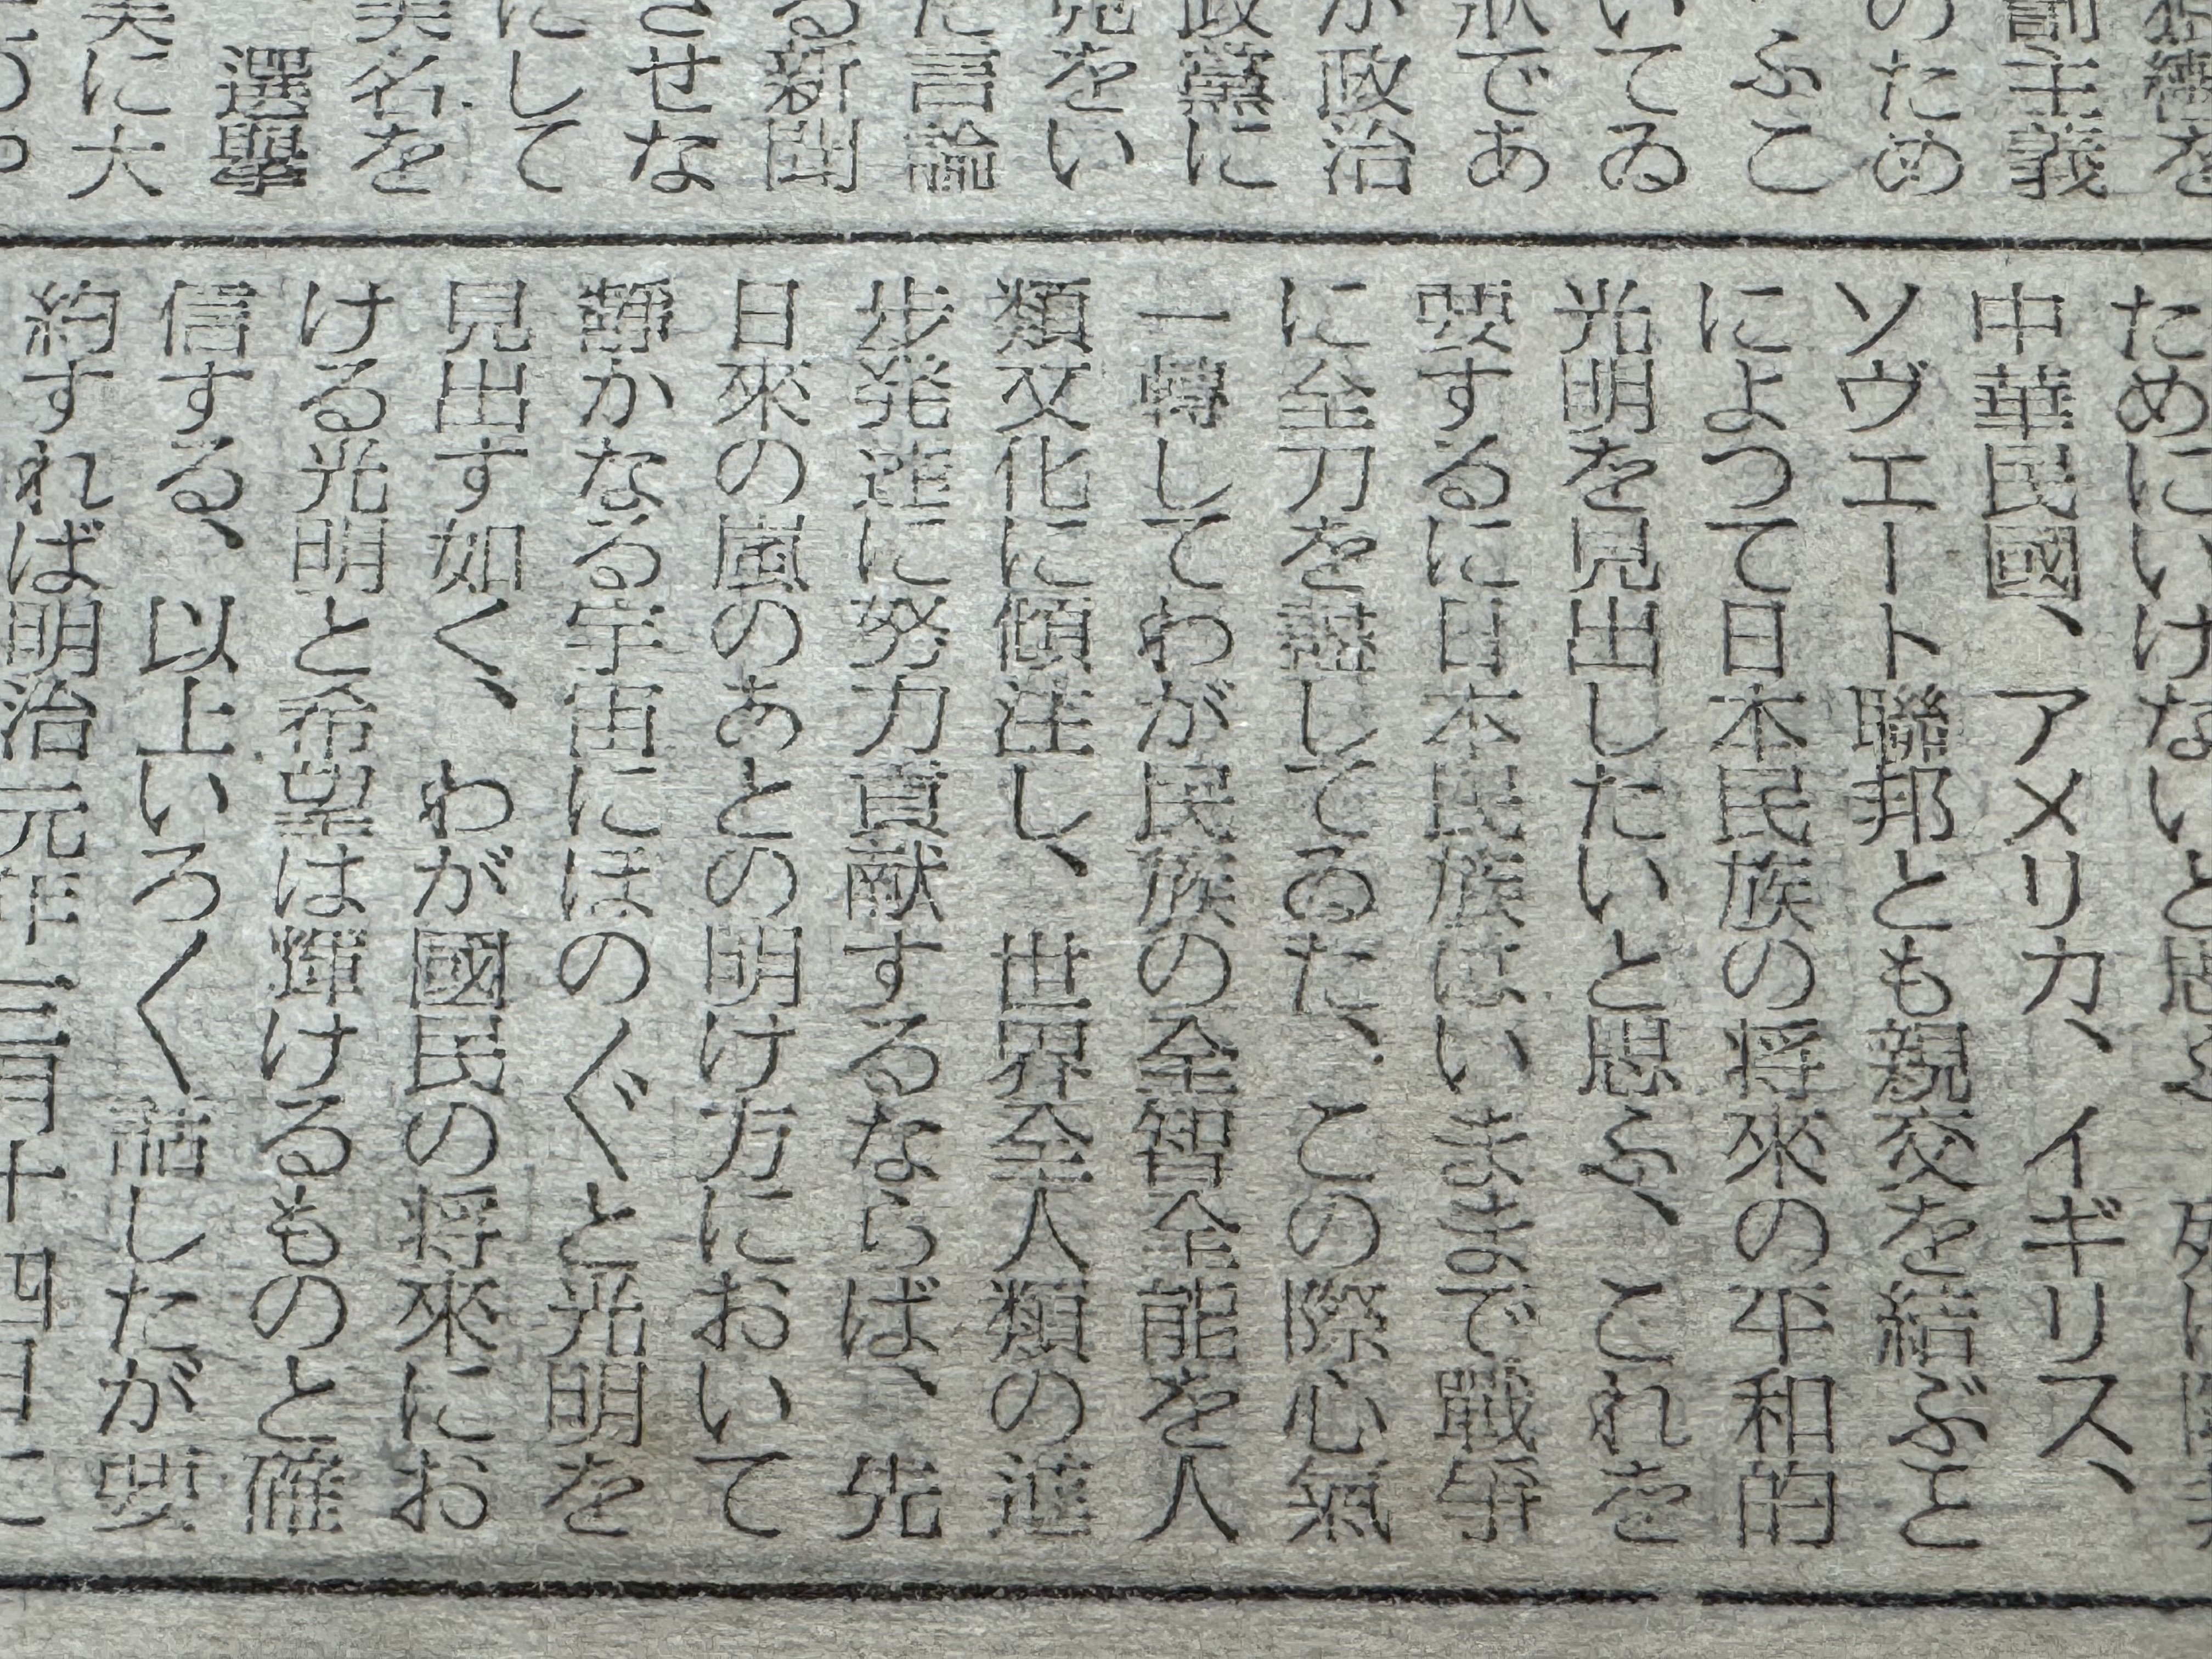 訓主義
のため
ふこ
いてゐ
狀であ
が政治
政黨に
見をい
た言論
る新聞
させな
にして
美名を
選擧
美に大
ためにいけないと思ふ
中華民國、アメリカ、イギリス、
ソヴエート聯邦とも親交を結ぶと
によつて日本民族の將來の平和的
光明を見出したいと思ふ、これを
要するに日本民族はいままで戰爭
に全力を盡してゐた、この際心氣
一轉してわが民族の全智全能を人
類文化に傾注し、世界全人類の進
步発達に努力貢献するならば、先
日來の嵐のあとの明け方において
靜かなる宇宙にほの〴〵と光明を
見出す如く、わが國民の將來にお
ける光明と希望は輝けるものと確
信する、以上いろ〱話したが要
約すれば明治元年三月十四日に